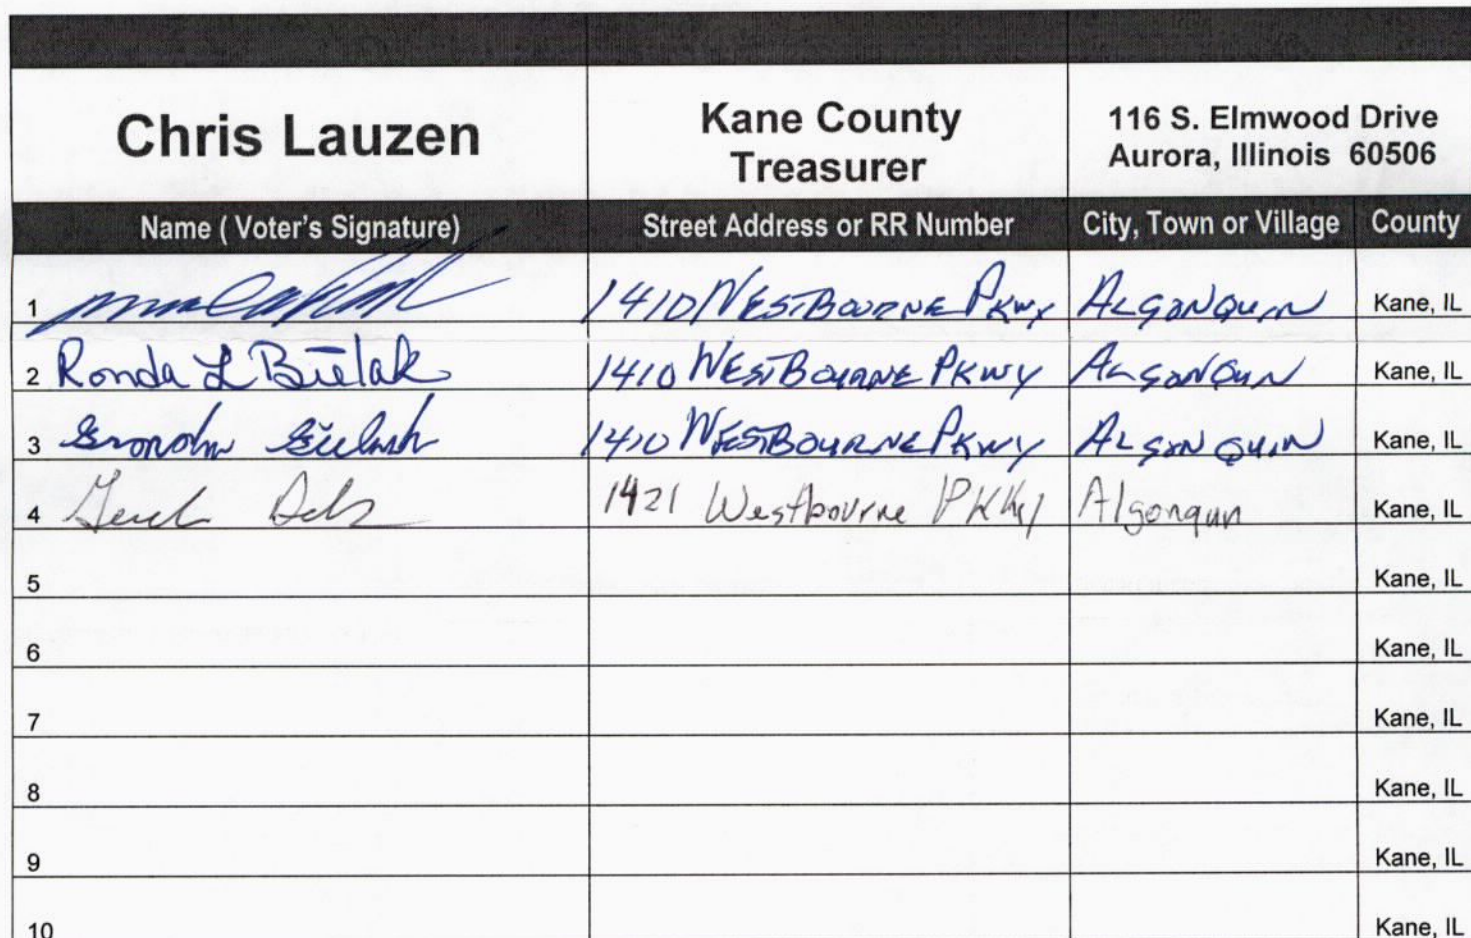 Chris Lauzen
Kane County
Treasurer
116 S. Elmwood Drive
Aurora, Illinois 60506
Name ( Voter's Signature) Street Address or RR Number City, Town or Village County
1 1410 WESTBOURNE PKWY ALGONQUIN Kane, IL
2 Ronda L Bielak 1410 WESTBOURNE PKWY ALGONQUIN Kane, IL
3 1410 WESTBOURNE PKWY ALGONQUIN Kane, IL
4 1421 Westbourne PKWY Algonqun Kane, IL
5 Kane, IL
6 Kane, IL
7 Kane, IL
8 Kane, IL
9 Kane, IL
10 Kane, IL